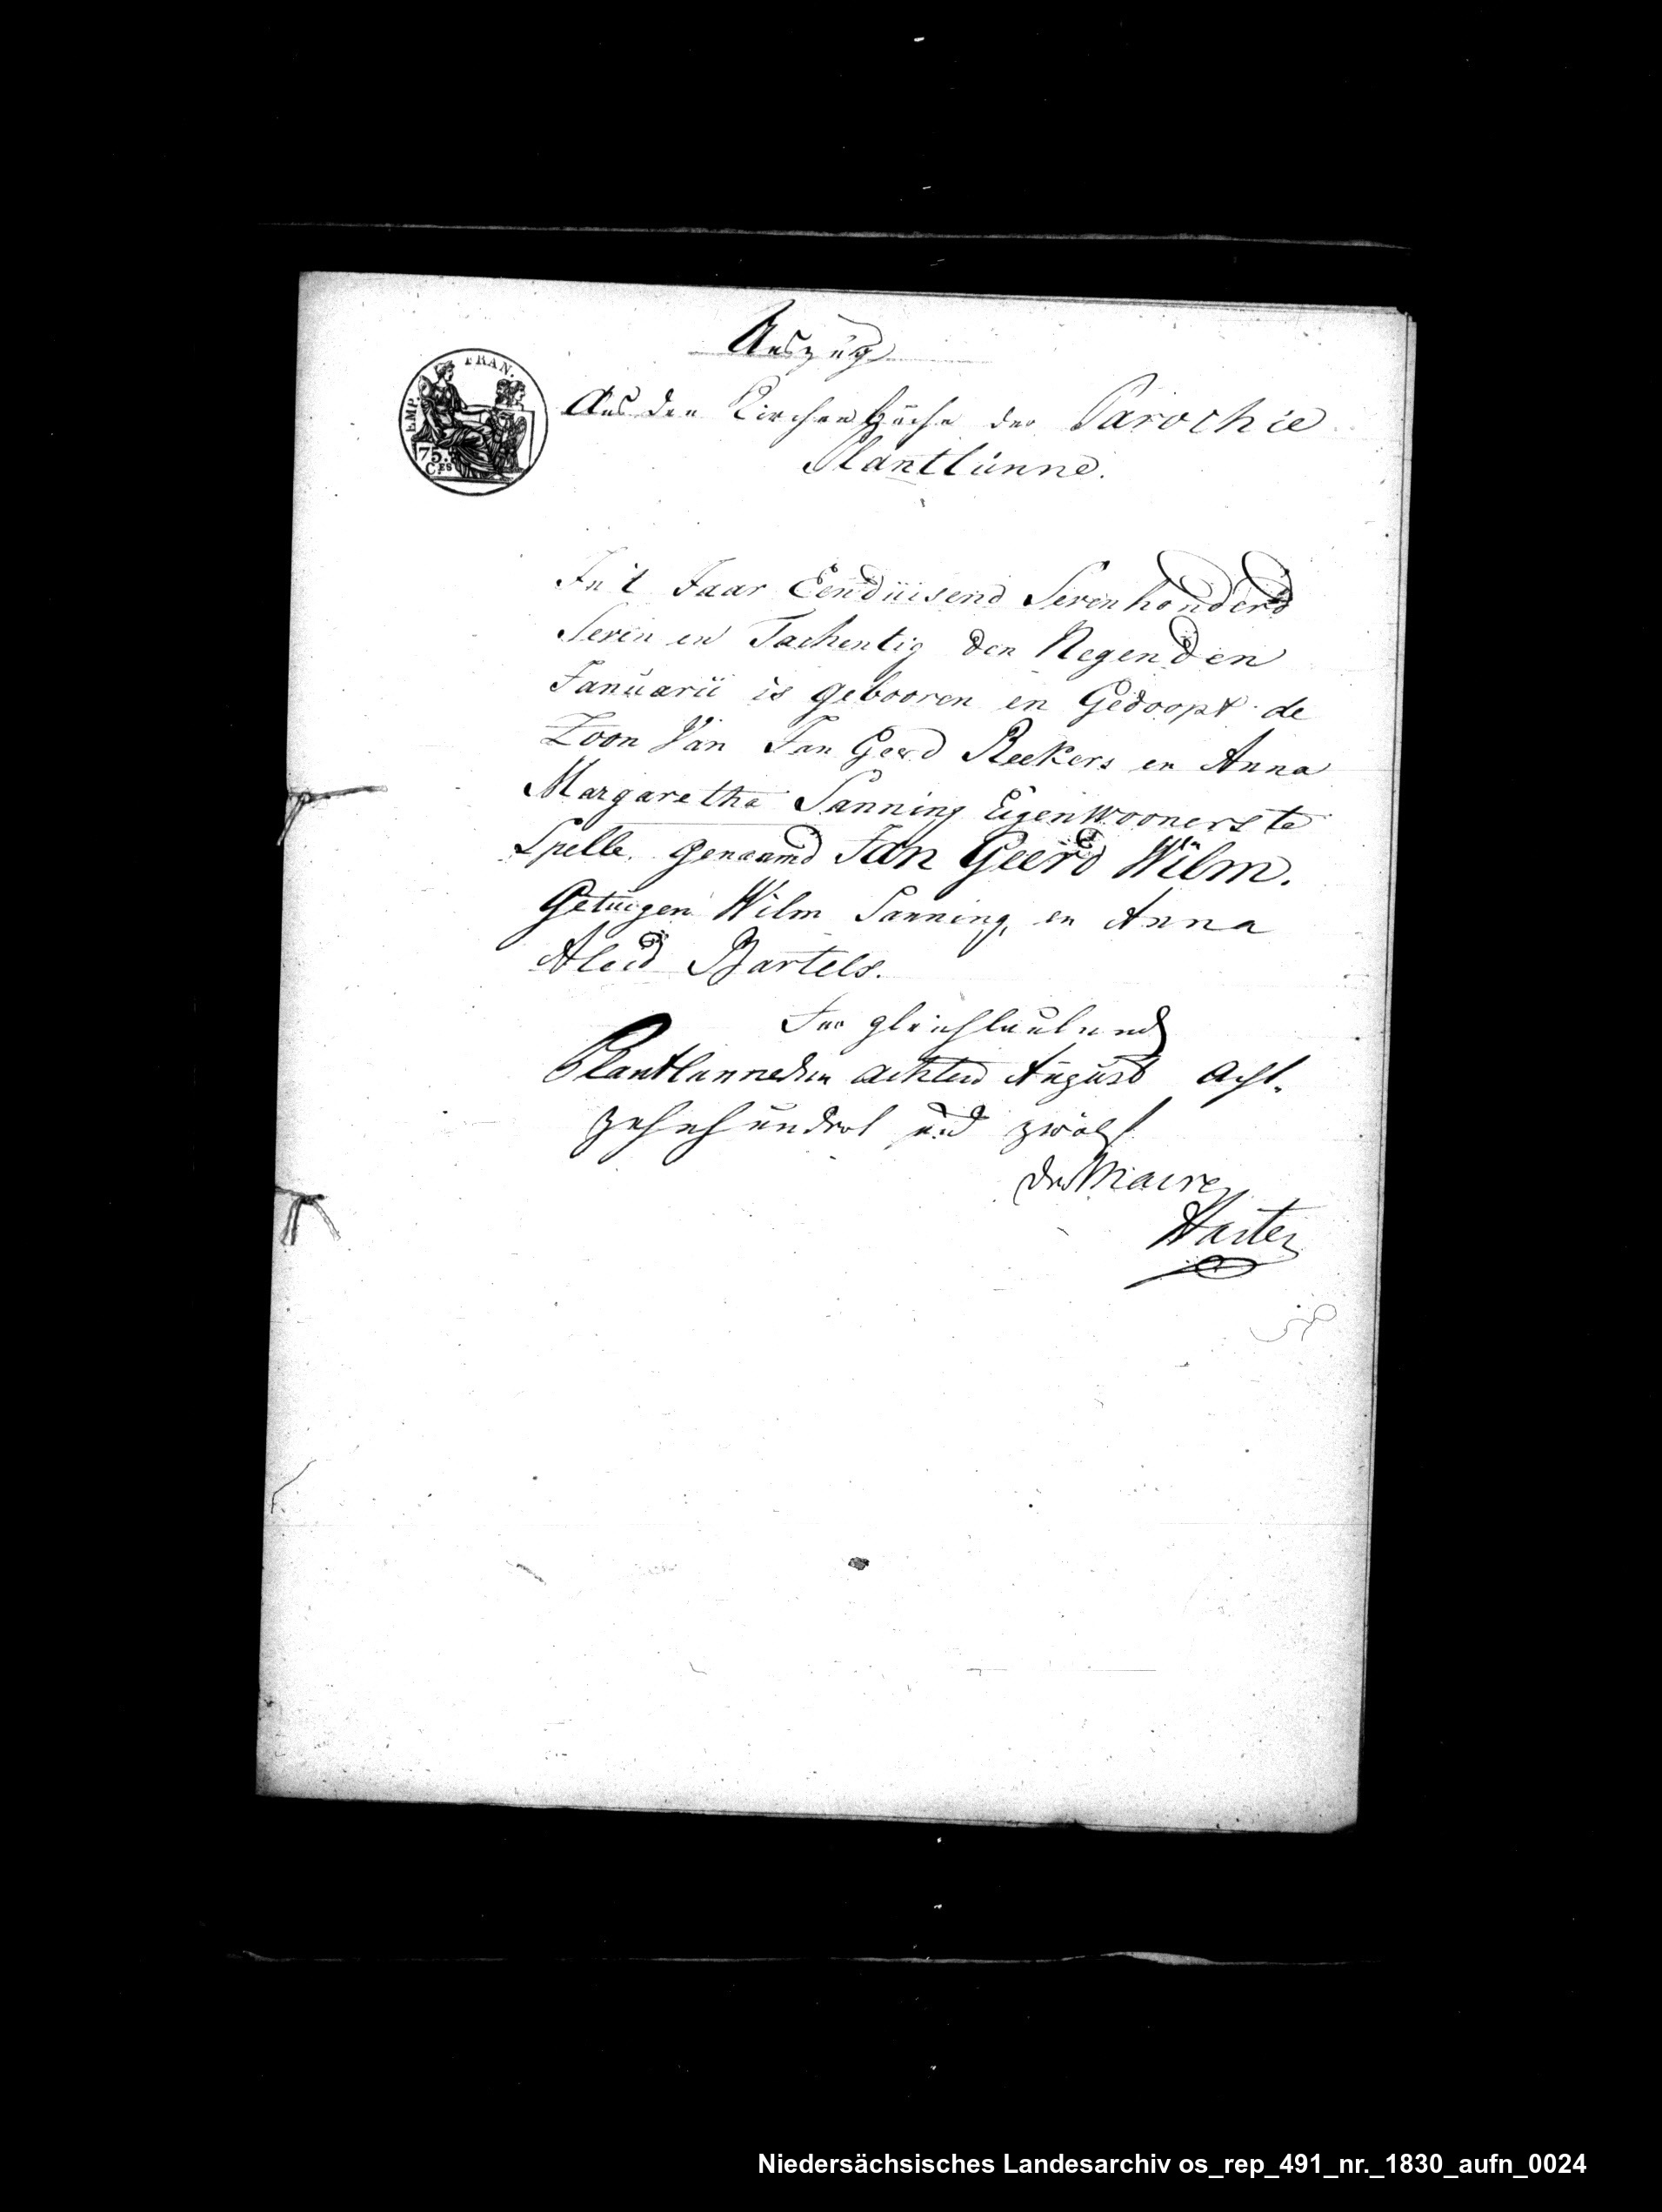 EMP. FRAN.
75.
C.ES
Auszug
Aus den Kirchen Büche der Parochie
Plantlünne.
In't Jaar Eenduisend Sevenhonderd
Seven en Tachentig den Negenden
Januarii is gebooren en Gedoopt de
Zoon Van Jan Gerd Reekers en Anna
Margaretha Sanning Eigenwooners te
Spelle, genaamd Jan Geerd Wilm.
Getuigen Wilm Sanning, en Anna
Aleid Bartels.
gleichlautend
Plantlunne den achten August Acht-
zehnhundert und zwölf
Der Maire
Niedersächsisches Landesarchiv os_rep_491_nr._1830_aufn_0024